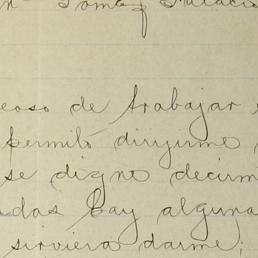 eoso de trabajar
permito dirijirme
se digne decirm
das hay alguna
sirviera darme;